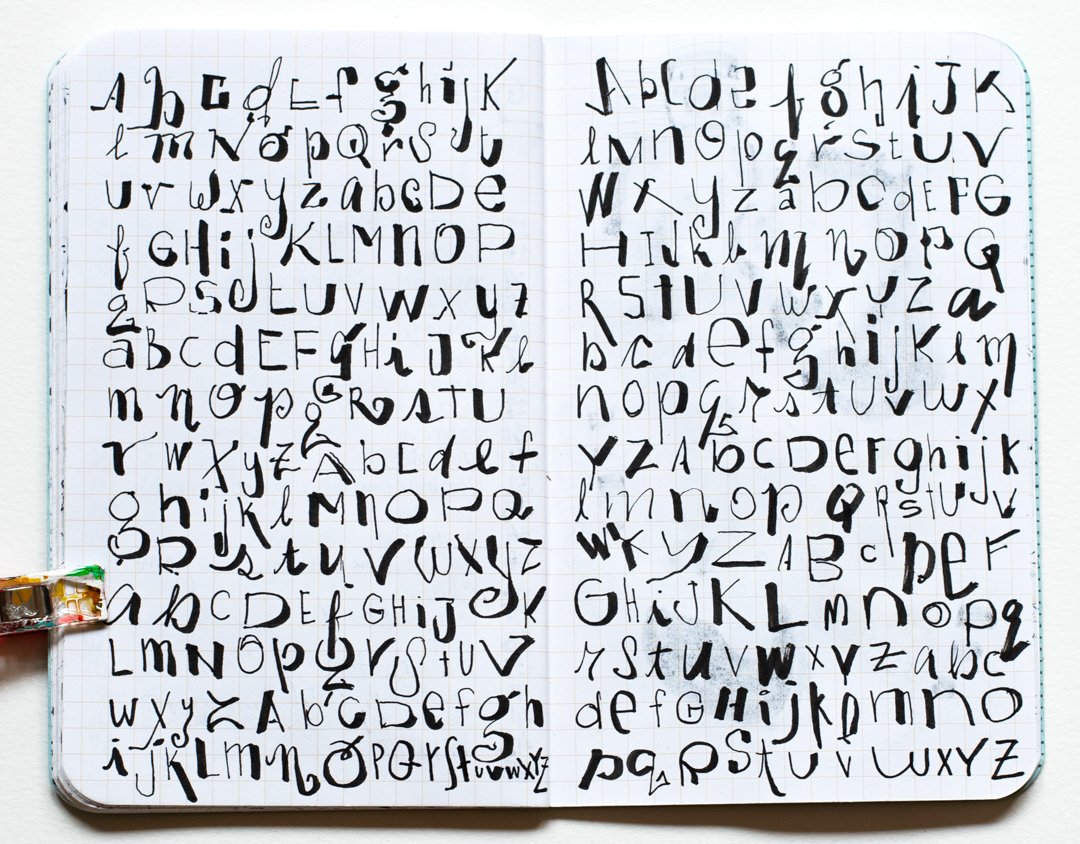 A b C d E f g h i j K
l m N o p Q r S t u
u v w x y z a b c D e
f G H i j K L M n O P
q R S t U V W x y z
a B C d E F g H i J K l
m n o p q R s T U
v w X y z A b C d e f
g h i j k l M n O P Q
q R s t u v w x y z
a b C D E f G H i J K
L M N O p Q r S t u V
w x y z A b C D e f g h
i j K L m n O P Q r S t u v w X Y Z
A b C d e f g h i J K
l M n O p q r S t U V
W X y z a b c d E F G
H I J k l m n o p Q
R S t U V w x y Z a
b c d e f g h i j K l m
n o p q r s t u v w x
y z A b c D e F g h i j k
l m n o p Q R S t U v
W X y Z A B c D E F
G H i J K L m n o p q
r S t u v w x v z a b c
d e f G H i j k l m n O
p q R S t U v W X Y Z